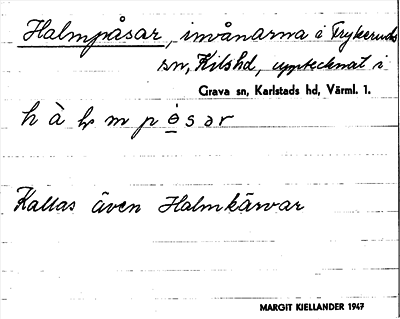 Halmpåsar, invånarna i Frykeruds
sn, Kils hd, upptecknat i
Grava sn, Karlstads hd, Värml. 1.
Kallas även Halmkärvar
MARGIT KIELLANDER 1947